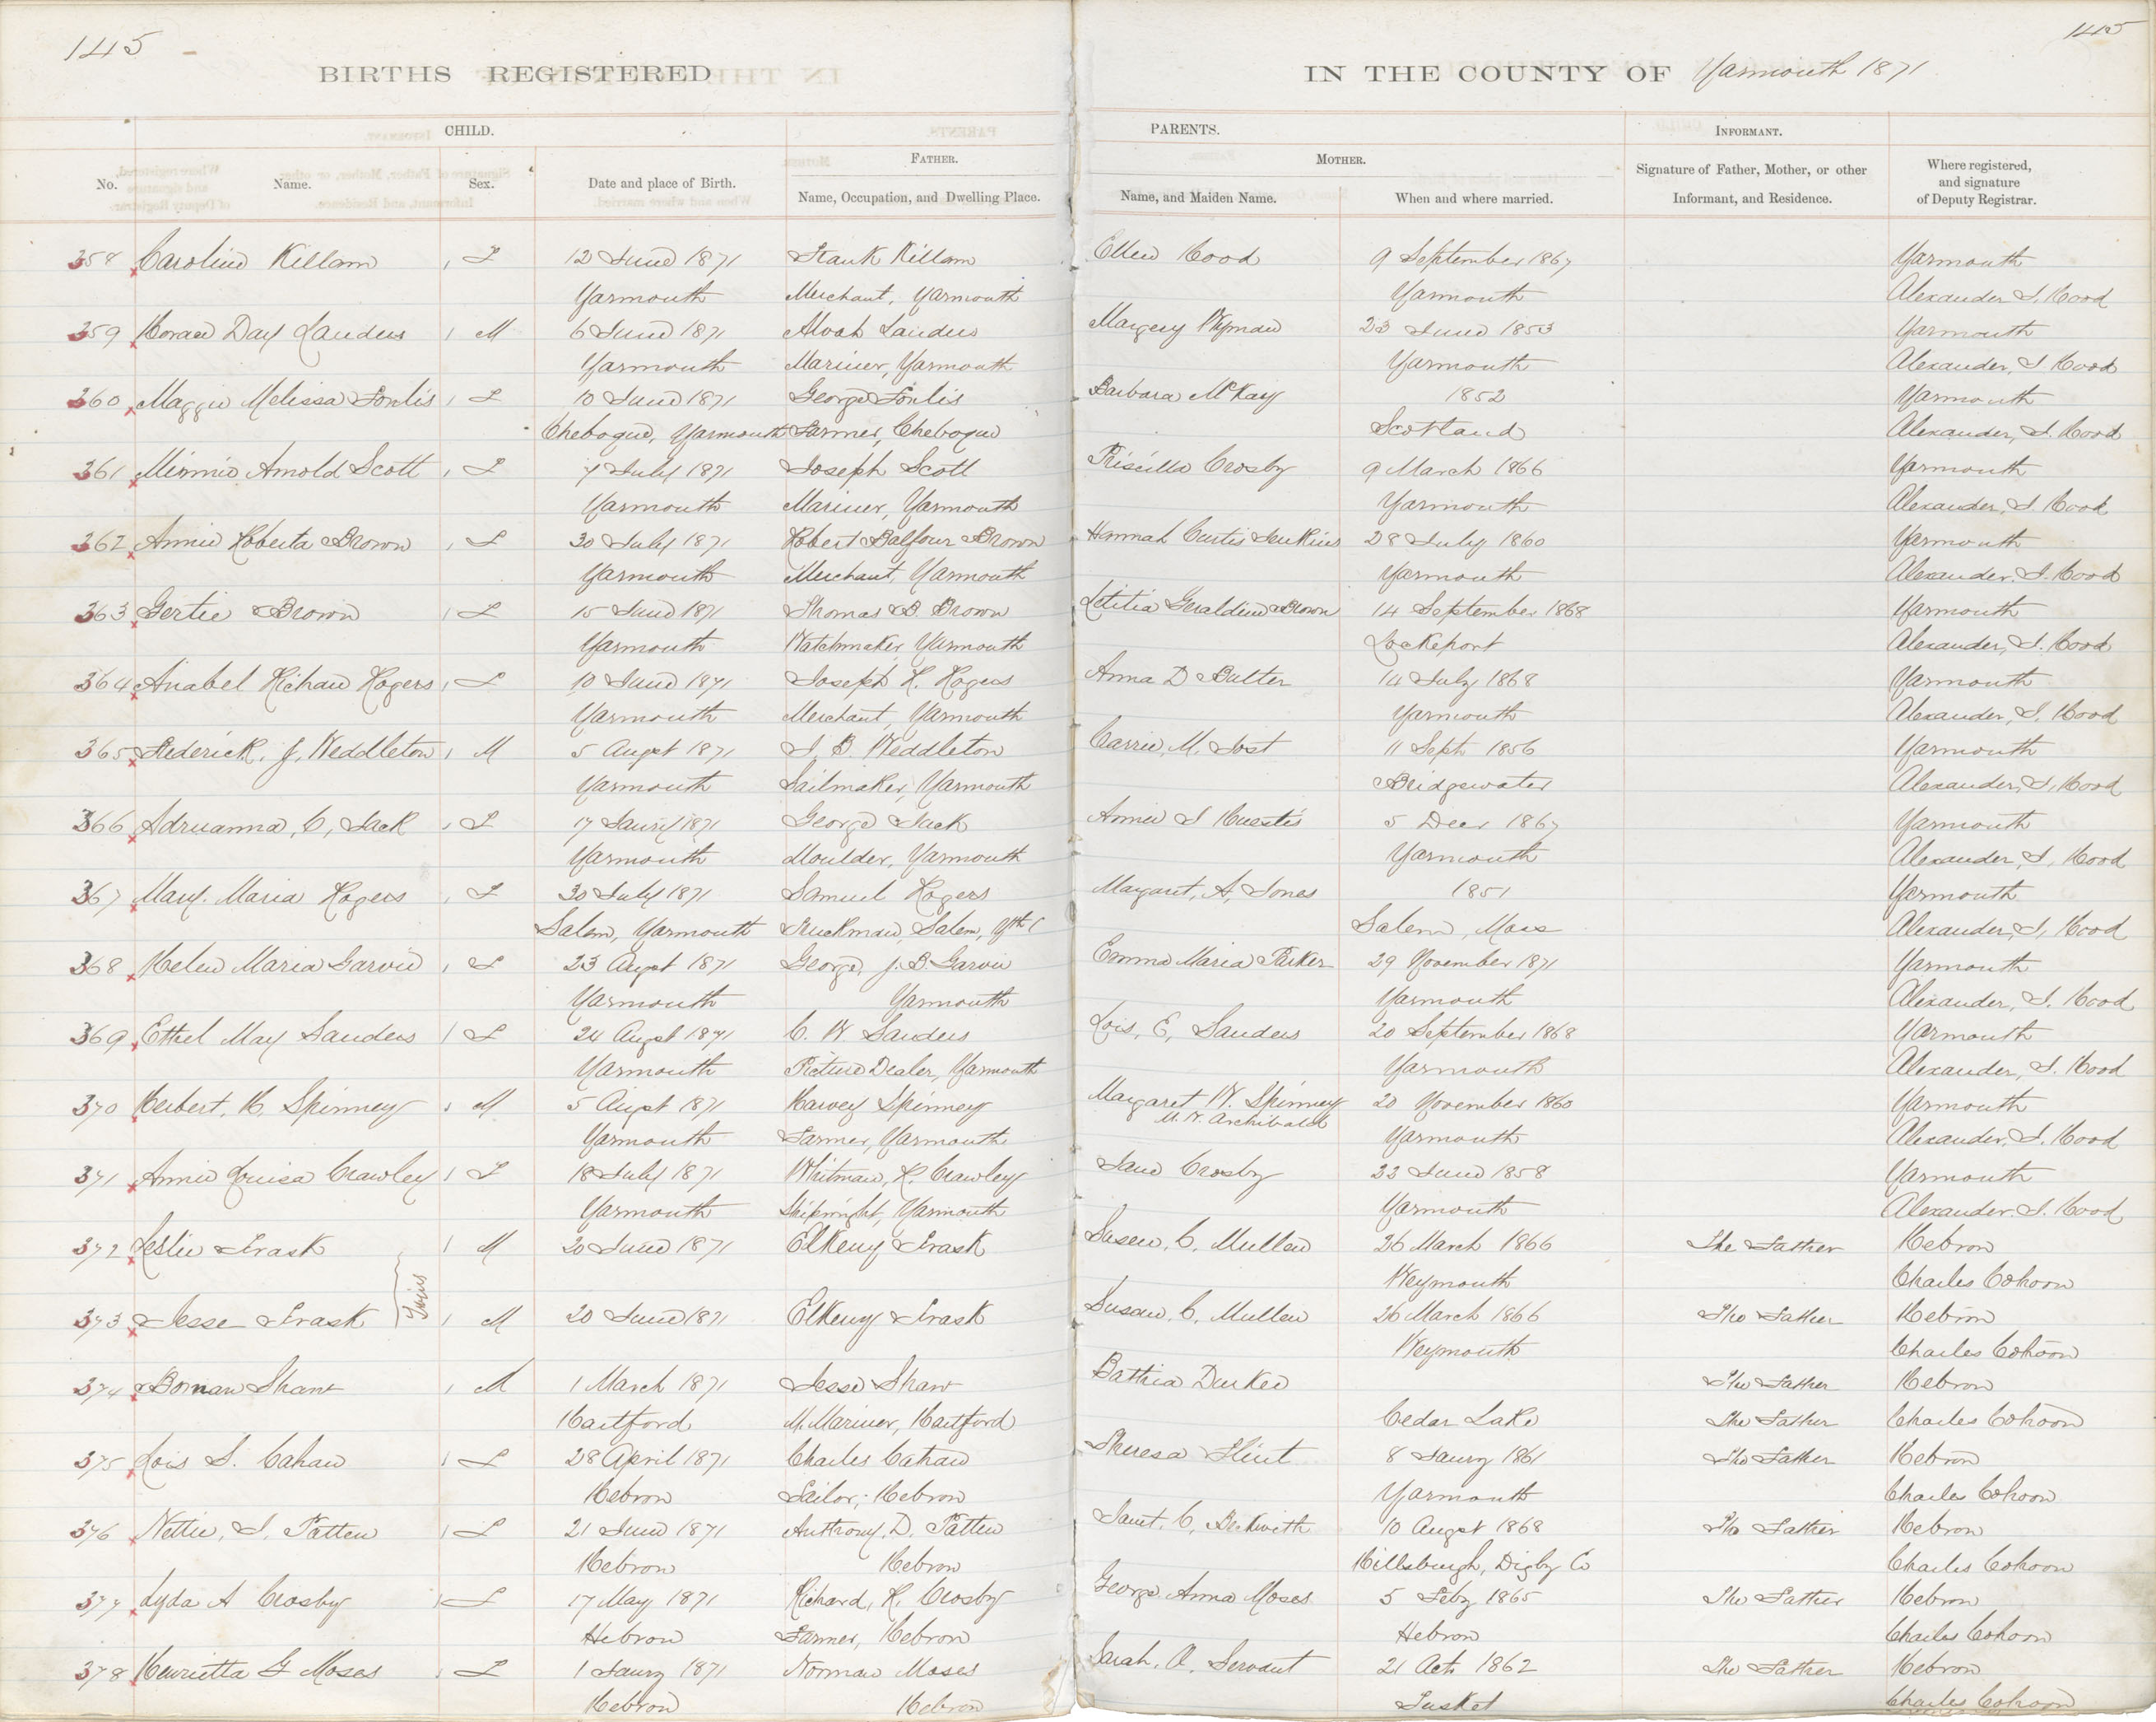 145
145
BIRTHS REGISTERED
IN THE COUNTY OF Yarmouth 1871
CHILD.
PARENTS.
INFORMANT.
FATHER.
MOTHER.
No.
Name.
Sex.
Date and place of Birth.
Name, Occupation, and Dwelling Place.
Name, and Maiden Name.
When and where married.
Signature of Father, Mother, or other
Informant, and Residence.
Where registered,
and signature
of Deputy Registrar.
358 Caroline Killam F 12 June 1871 Frank Killam Ellen Hood 9 September 1867 Yarmouth
Yarmouth Merchant, Yarmouth Yarmouth Alexander J. Hood
359 Horace Day Landers M 6 June 1871 Alvah Landers Margery Wyman 23 June 1853 Yarmouth
Yarmouth Mariner, Yarmouth Yarmouth Alexander, J. Hood
360 Maggie Melissa Foulis F 10 June 1871 George Foulis Barbara McKay 1852 Yarmouth
Chebogue, Yarmouth Farmer, Chebogue Scotland Alexander, J. Hood
361 Minnie Arnold Scott F 7 July 1871 Joseph Scott Priscilla Crosby 9 March 1866 Yarmouth
Yarmouth Mariner, Yarmouth Yarmouth Alexander, J. Hood
362 Annie Roberta Brown F 30 July 1871 Robert Balfour Brown Hannah Curtis Jenkins 28 July 1860 Yarmouth
Yarmouth Merchant, Yarmouth Yarmouth Alexander, J. Hood
363 Gertie Brown F 15 June 1871 Thomas B. Brown Letitia Geraldine Brown 14 September 1868 Yarmouth
Yarmouth Watchmaker, Yarmouth Lockeport Alexander, J. Hood
364 Anabel Richan Rogers F 10 June 1871 Joseph R. Rogers Anna D Butler 14 July 1868 Yarmouth
Yarmouth Merchant, Yarmouth Yarmouth Alexander, J. Hood
365 Frederick, J, Weddleton M 5 Augst 1871 J. B. Weddleton Carrie, M, Jost 11 Sept 1856 Yarmouth
Yarmouth Sailmaker, Yarmouth Bridgewater Alexander, J, Hood
366 Adruanna, C, Jack F 17 1871 George Jack Annie J Huestis 5 Decr 1867 Yarmouth
Yarmouth Moulder, Yarmouth Yarmouth Alexander, J, Hood
367 Mary. Maria Rogers F 30 July 1871 Samuel Rogers Margaret, A, Jones 1851 Yarmouth
Salem, Yarmouth Truckman, Salem, Salem, Mass Alexander, J, Hood
368 Helen Maria Garvin F 23 Augst 1871 George, J. B. Garvin Emma Maria Parker 29 November 1871 Yarmouth
Yarmouth Yarmouth Yarmouth Alexander, J. Hood
369 Ethel May Sanders F 24 Augst 1871 C. W Sanders Lois, E, Sanders 20 September 1868 Yarmouth
Yarmouth Picture Dealer, Yarmouth Yarmouth Alexander, J. Hood
370 Herbert, H, Spinney M 5 Augst 1871 Harvey Spinney Margaret W. Spinney 20 November 1860 Yarmouth
M. W. Archibald
Yarmouth Farmer, Yarmouth Yarmouth Alexander, J. Hood
371 Annie Louisa Crawley F 18 July 1871 Whitman, R. Crawley Jane Crosby 22 June 1858 Yarmouth
Yarmouth Shipwright, Yarmouth Yarmouth Alexander. J. Hood
372 Leslie Trask M 20 June 1871 Elkeny Trask Susan, C, Mullen 26 March 1866 The Father Hebron
Twins
Weymouth Charles Cohoon
373 Jesse Trask M 20 June 1871 Elkeny Trask Susan, C, Mullen 26 March 1866 The Father Hebron
Weymouth Charles Cohoon
374 Boman Shaw M 1 March 1871 Jesse Shaw Bathia Durkee The Father Hebron
Hartford M. Mariner, Hartford Cedar Lake The Father Charles Cohoon
375 Lois S. Cahan F 28 April 1871 Charles Cahan Theresa Flint 8 Jany 1861 The Father Hebron
Hebron Sailor, Hebron Yarmouth Charles Cohoon
376 Nettie, J, Patten F 21 June 1871 Anthony, D, Patten Janet, C, Beckwith 10 Augst 1868 The Father Hebron
Hebron Hebron Hillsburgh, Digby Co Charles Cohoon
377 Lyda A Crosby F 17 May 1871 Richard, R, Crosby George Anna Moses 5 Feby 1865 The Father Hebron
Hebron Farmer, Hebron Hebron Charles Cohoon
378 Henrietta G Moses F 1 Jany 1871 Norman Moses Sarah, A, Servant 21 Oct 1862 The Father Hebron
Hebron Hebron Tusket Charles Cohoon